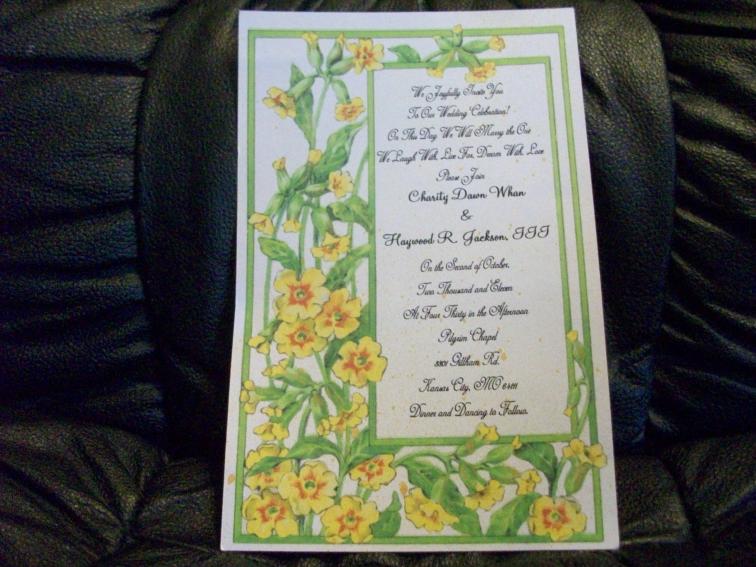 We Joyfully Invite You
To Our Wedding Celebration!
On This Day We Will Marry the One
We Laugh With, Live For, Dream With, Love
Please Join
Charity Dawn Whan
&
Haywood R. Jackson, III
On the Second of October,
Two Thousand and Eleven
At Four Thirty in the Afternoon
Pilgrim Chapel
3801 Gillham Rd.
Kansas City, MO 64111
Dinner and Dancing to Follow.